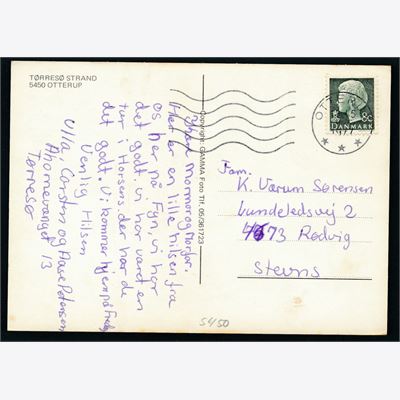 TØRRESØ STRAND
5450 OTTERUP
Kære mormor og morfar.
Her er en lille hilsen fra
os her på Fyn, vi har
det godt. vi har været en
tur i Horsens der har de
det godt. Vi kommer hjem på
Venlig Hilsen
Ulla, Carsten og Aase Petersen
Ahornevænget 13
Tørresø
Copyright: GAMMA Foto Tlf. 05/361723
OTTERUP
DANMARK
Fam.
K. Værum Sørensen
Lundeledsvej 2
4673 Rødvig
Stevns
5450